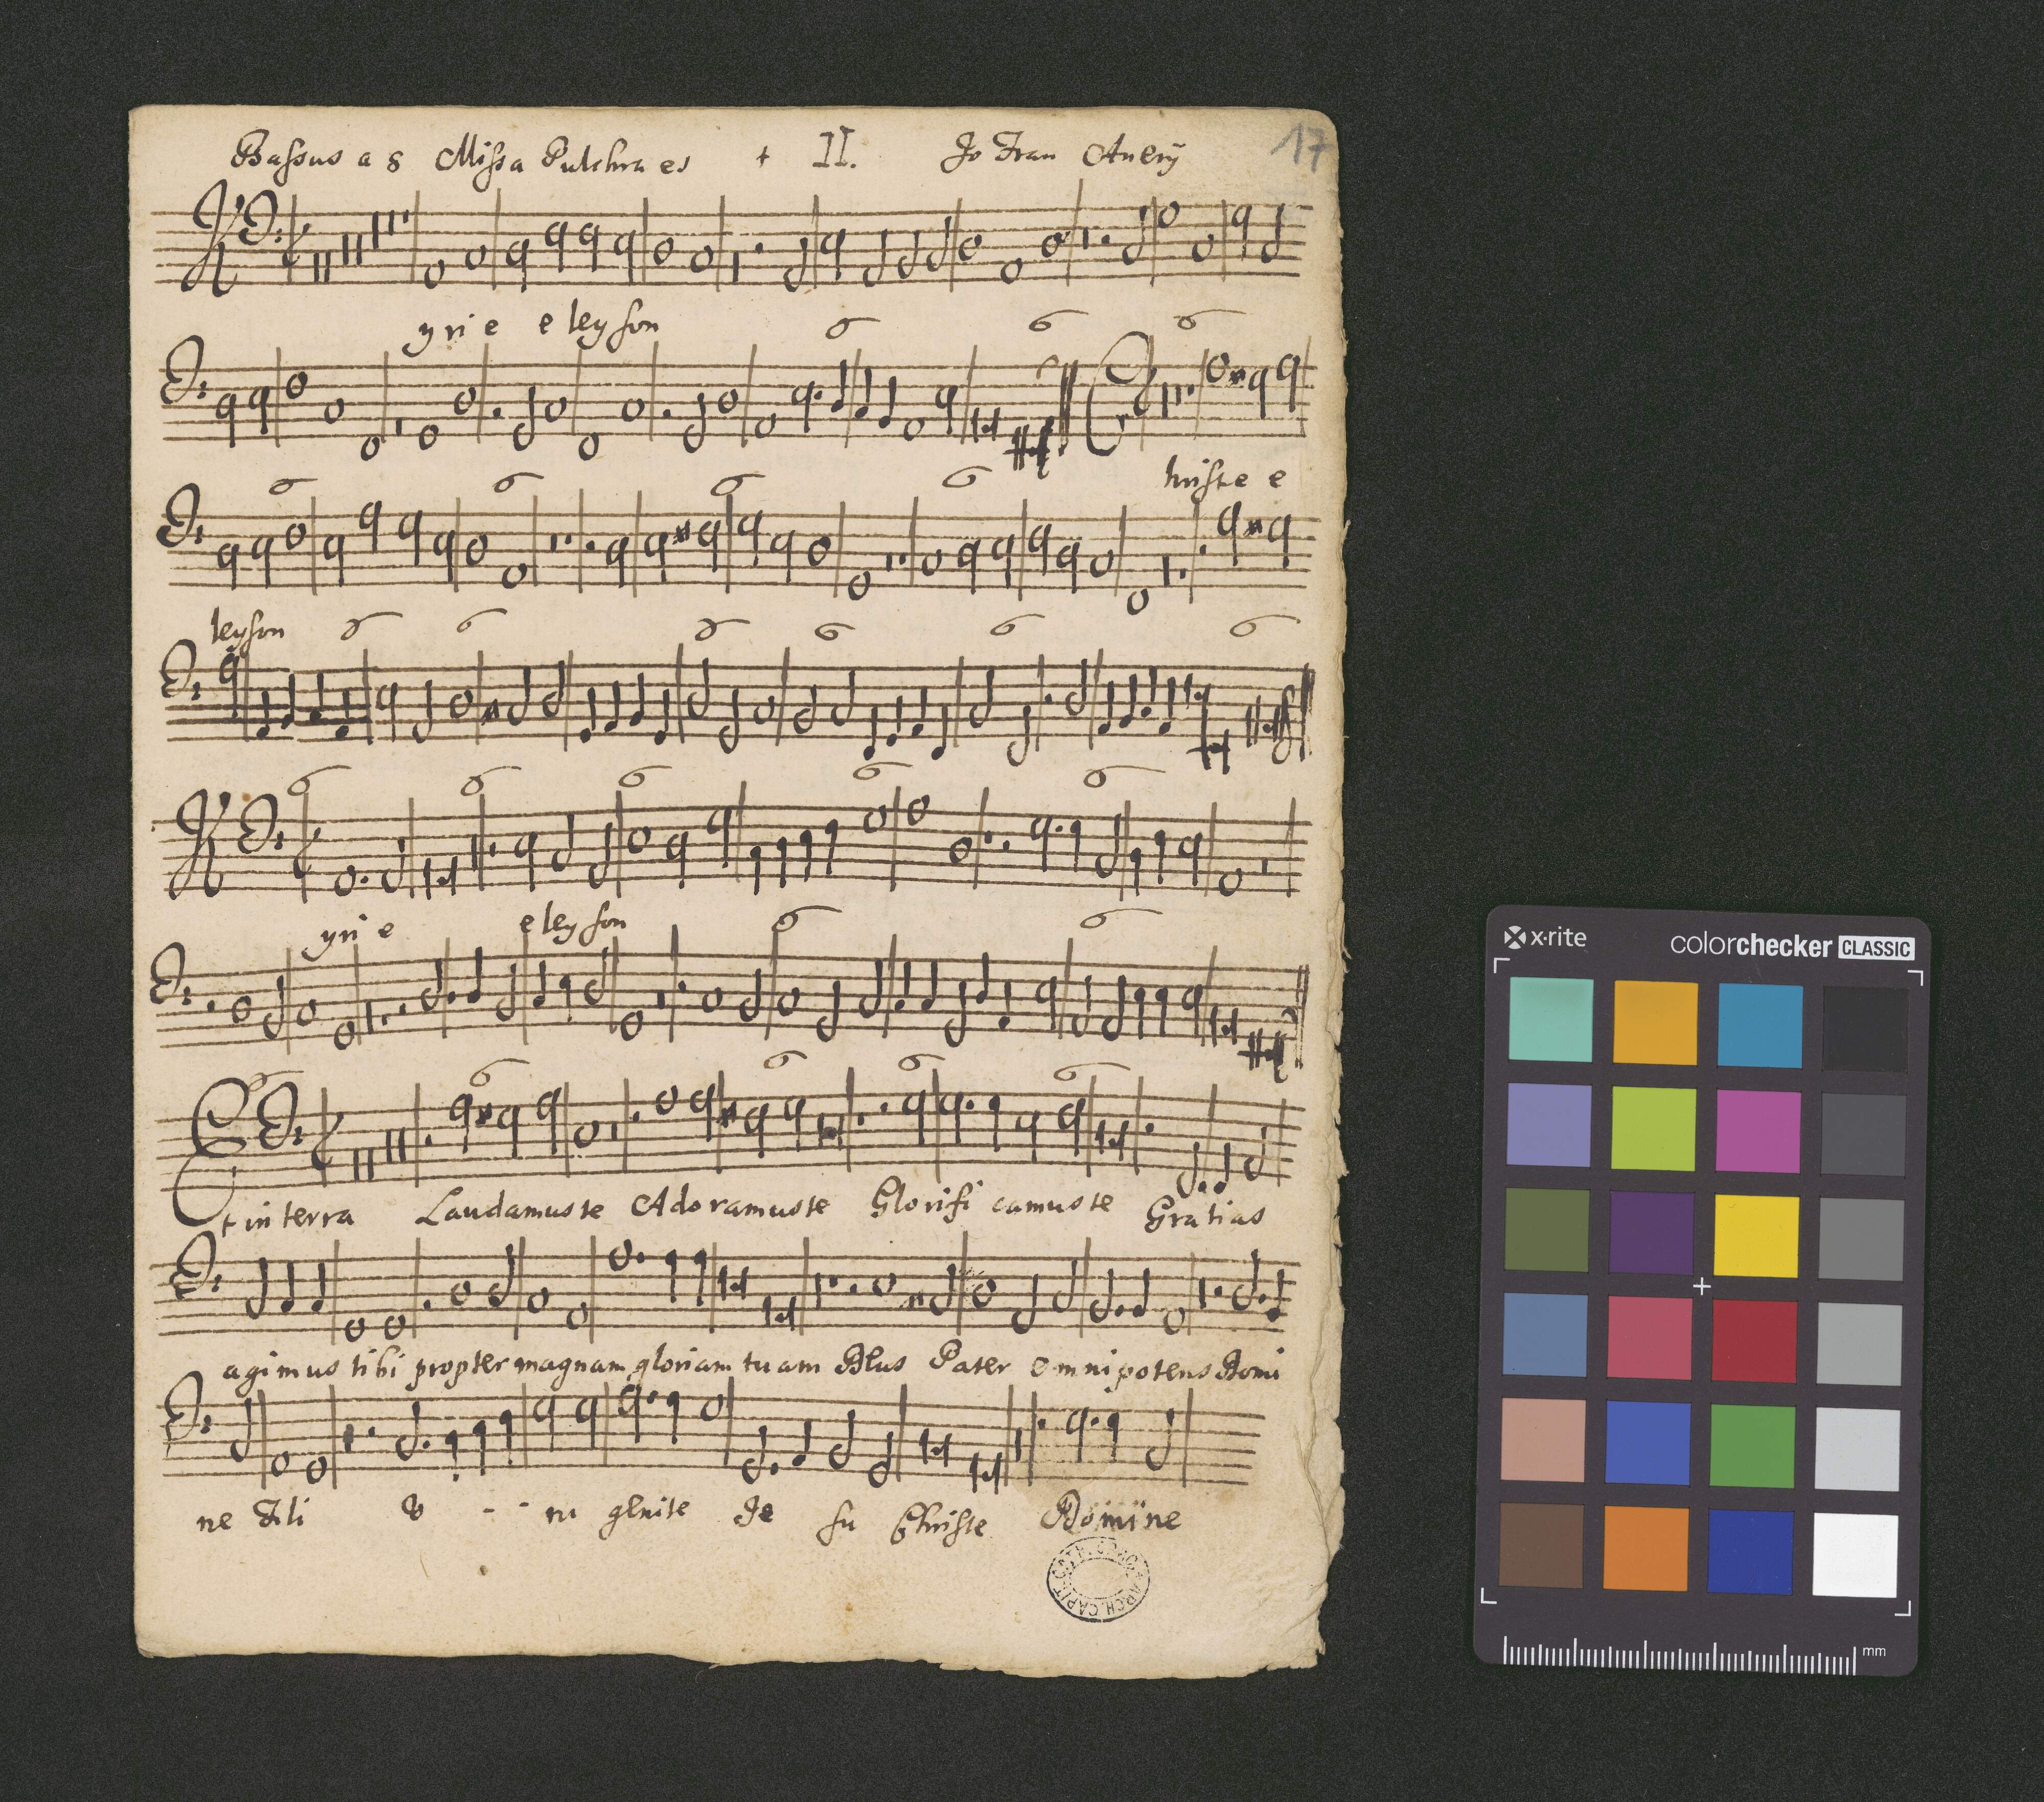 Bassus a 8 Missa Pulchra es + II. Jo Fran Anerÿ 17
K
yri e e ley son
C
hriste e
leyson
K
yri e e ley son
Et in terra Laudamus te Adoramuste Glorifi camus te Gratias
agimus tibi propter magnam gloriam tuam Pater omnipotens Domi
ne Fili V - - ni genite Je su Christe Domine
x·rite colorchecker CLASSIC
mm